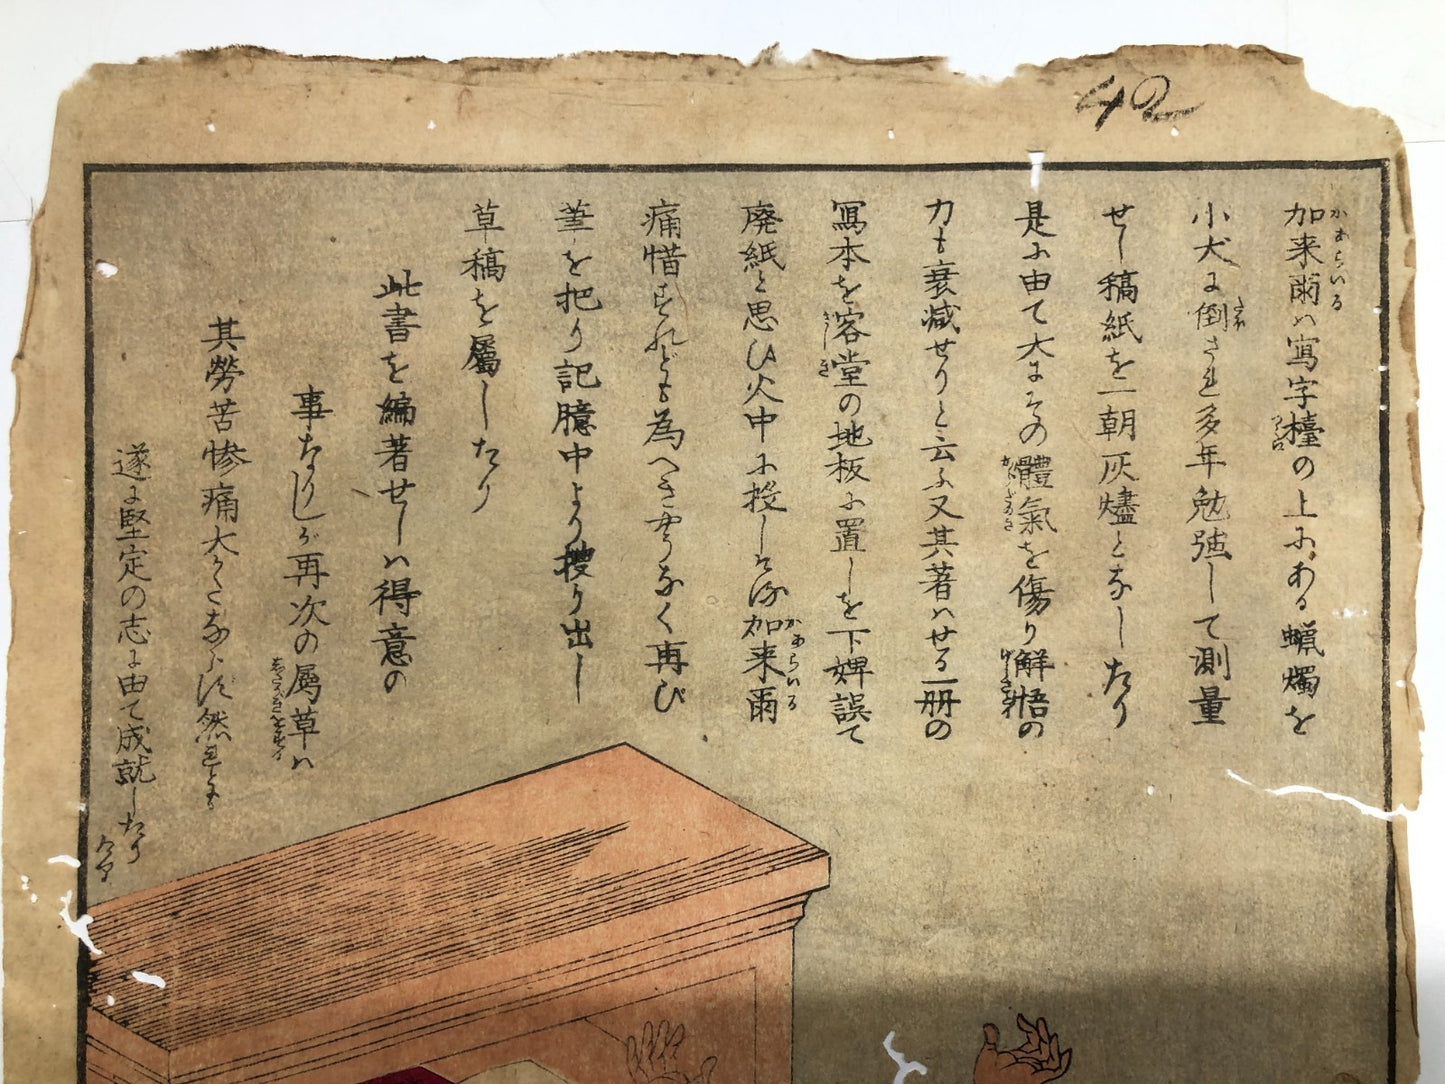 42
加来爾ハ寫字檯の上にある蝋燭を
かあらいる
小犬に倒され多年勉強して測量
せし稿紙を一朝灰燼となしたり
是に由て大にその體氣を傷り解悟の
力も衰減せりと云ふ又其著ハせる一册の
寫本を客堂の地板に置しを下婢誤て
廃紙と思ひ火中に投しける加来爾
かあらいる
痛惜すれども為へきやうなく再び
筆を把り記臆中より搜り出し
草稿を属したり
此書を編著せしハ得意の
事なりしが再次の属草ハ
其勞苦惨痛大かたならず然れとも
遂に堅定の志に由て成就したり